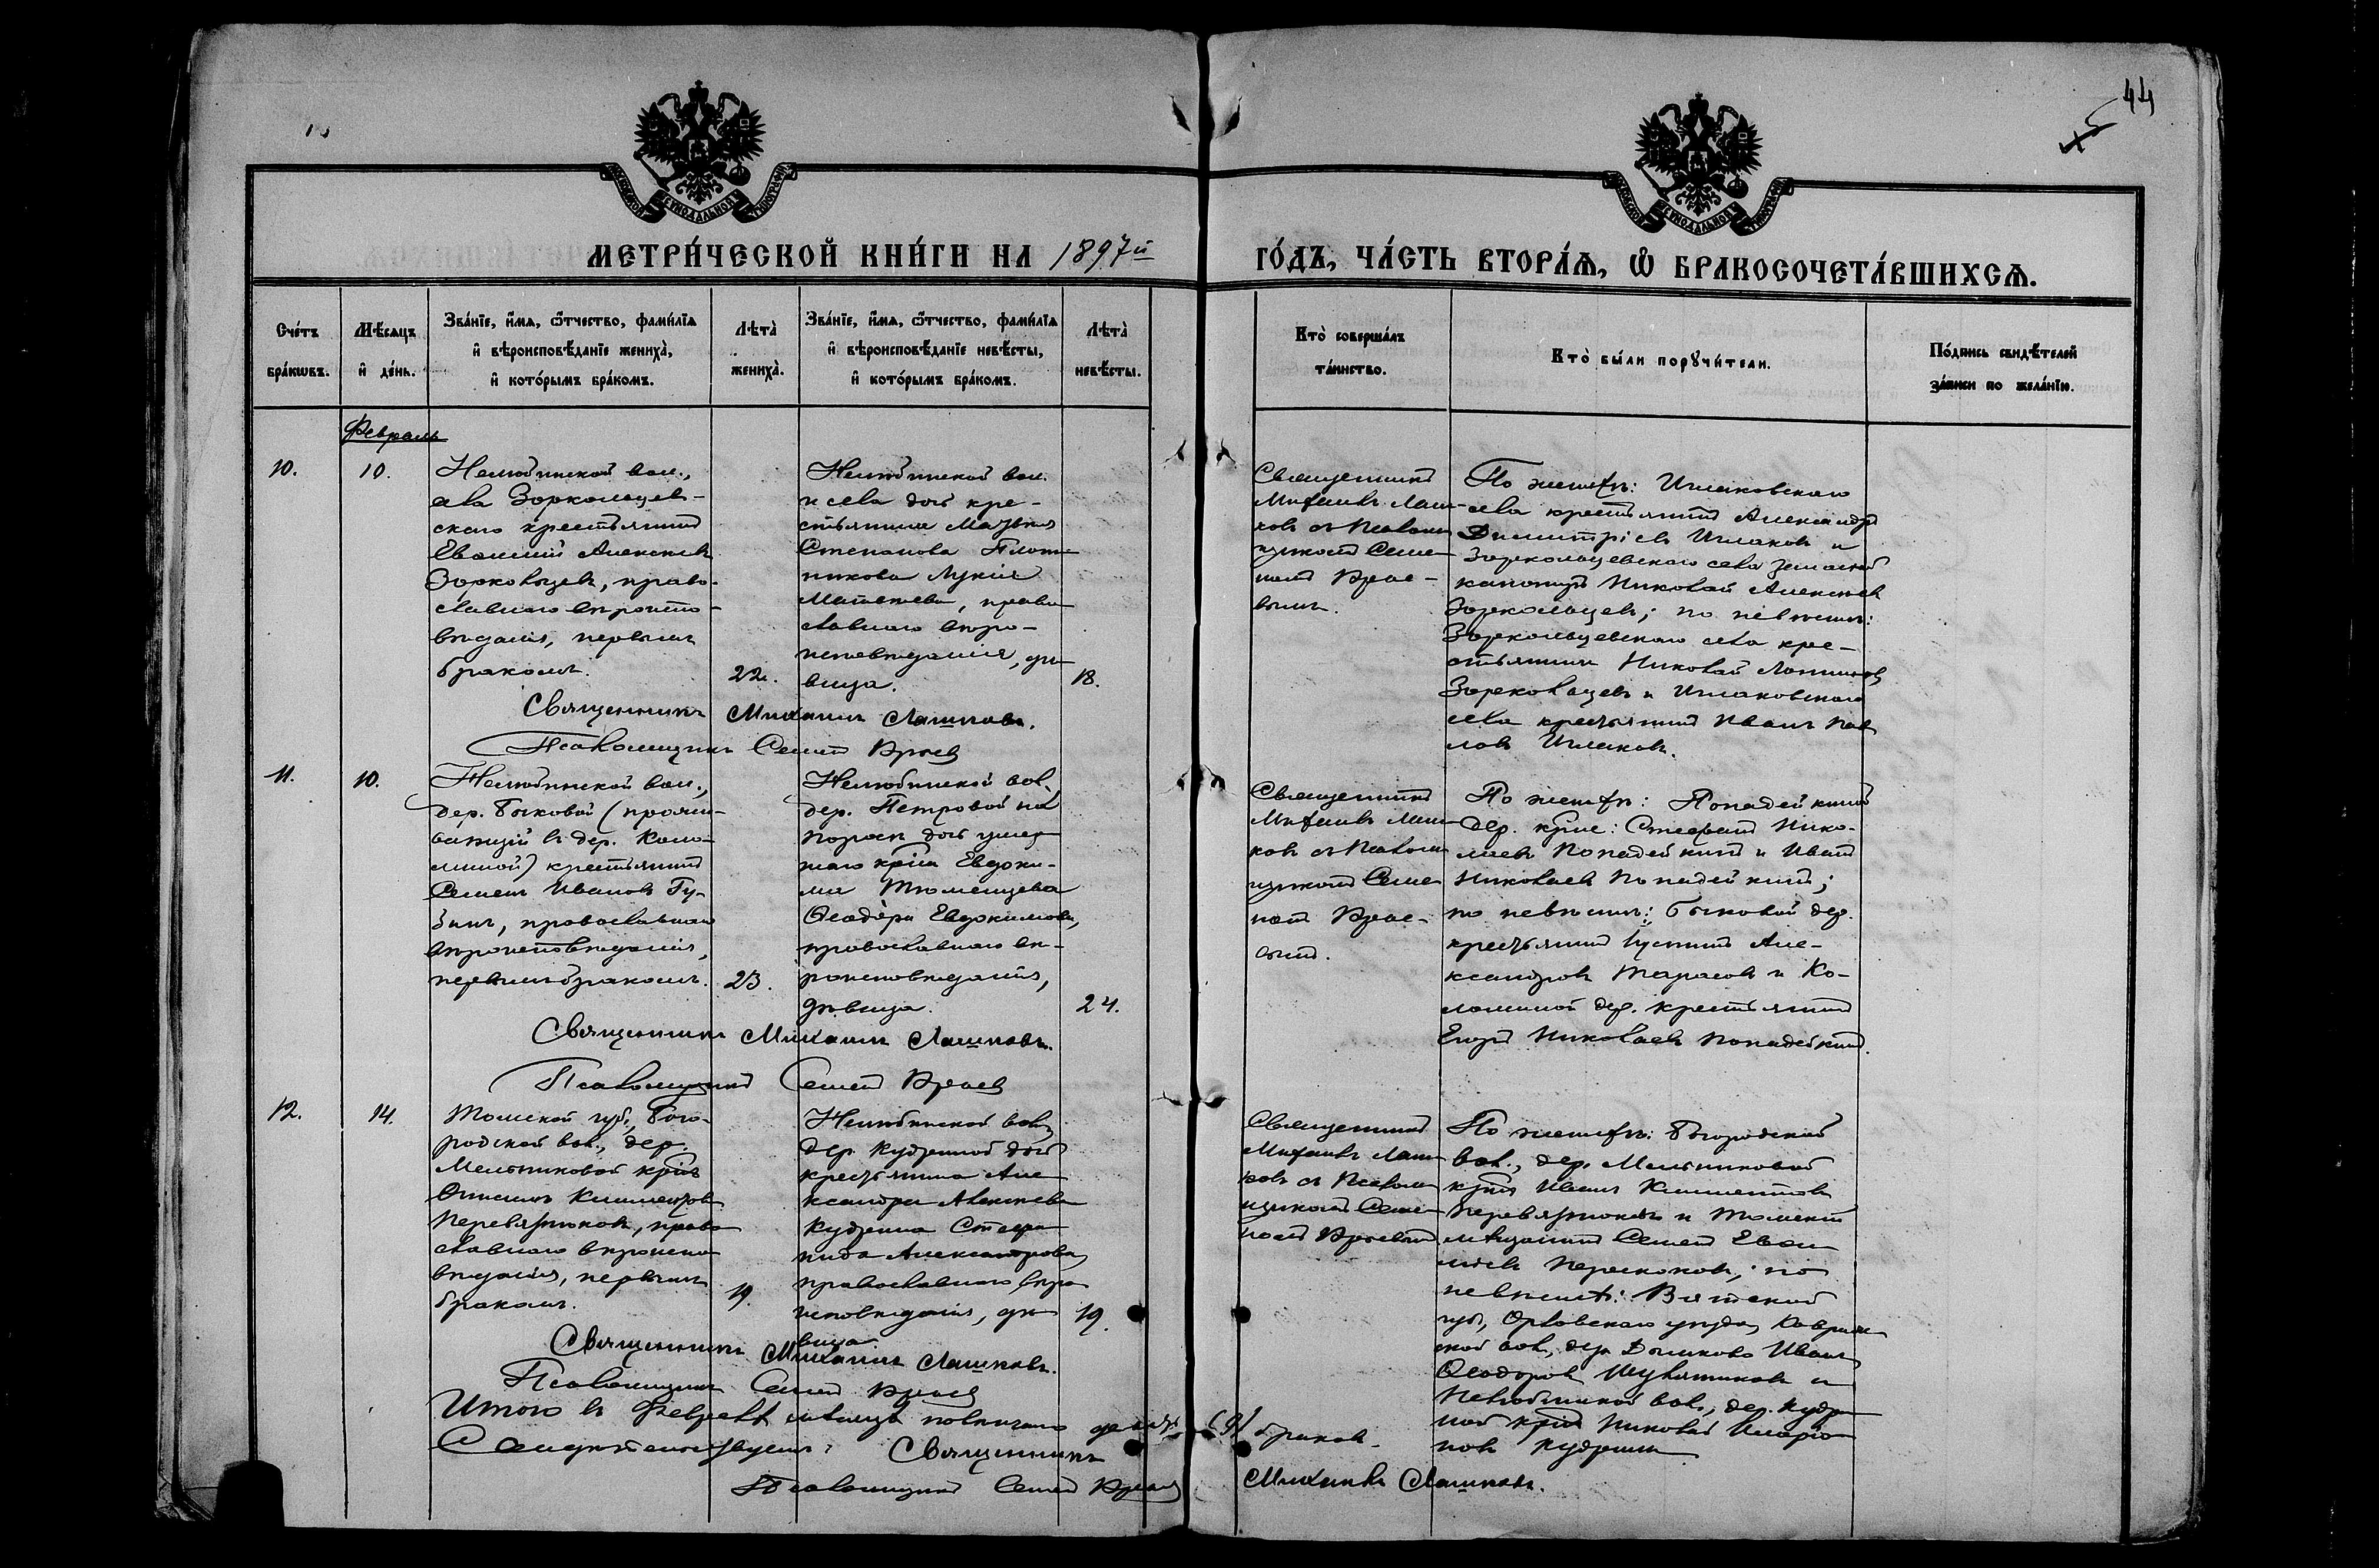 44
МЕТРИ́ЧЕСКОЙ КНИ́ГИ НА 1897й
ГО́ДЪ, ЧА́СТЬ ВТОРА́Ѧ, Ѡ҆ БРАКОСОЧЕТА́ВШИХСѦ.
Сче́тъ бра́кѡвъ.
Мѣ́сяцъ и҆ де́нь.
Зва́нїе, и҆́мѧ, ѻ҆́тчество, фамѝлїѧ
и҆ вѣроисповѣ́данїе жениха̀,
и҆ кото́рымъ бра́комъ.
Лѣта̀ жениха̀.
Зва́нїе, и҆́мѧ, ѻ҆́тчество, фамѝлїѧ
и҆ вѣроисповѣ́данїе невѣ́сты,
и҆ кото́рымъ бра́комъ.
Лѣта̀ невѣ́сты.
Кто̀ соверша́лъ
та́инство.
Кто̀ бы́ли порꙋчи́тели.
По́дпись свидѣ́телей
за́писи по жела́нїю.
Февраль
10.
10.
Нелюбинской вол.,
села Зоркольцев-
скаго крестьянинъ
Евѳимій Алексѣевъ
Зоркольцевъ, право-
славнаго вѣроиспо-
вѣданія, первымъ
бракомъ.
22.
Нелюбинской вол.
и села дочь кре-
стьянина Матѳея
Степанова Плот-
никова Лукія
Матѳеева, право-
славнаго вѣро-
исповѣданія, дѣ-
вица.
18.
Священникъ
Михаилъ Лаш-
ковъ съ псалом-
щикомъ Семе-
номъ
По женихѣ:
села крестьянинъ Александръ
Димитріевъ и
Зоркольцевскаго села
Николай Алексѣевъ
Зоркольцевъ; по невѣстѣ:
Зоркольцевскаго села кре-
стьянинъ Николай
Зоркольцевъ и
села крестьянинъ Иванъ Пав-
ловъ
Священникъ Михаилъ Лашковъ.
Псаломщикъ Семенъ
11.
10.
Нелюбинской вол.,
дер. Быковой (прожи-
вающій въ дер. Коло-
миной) крестьянинъ
Семенъ Ивановъ Гу-
зинъ, православнаго
вѣроисповѣданія,
первымъ бракомъ.
23.
Нелюбинской вол.,
дер. Петровой на
Поросѣ дочь умер-
шаго кр-на Евдоки-
ма Тюменцева
Ѳеодора Евдокимова,
православнаго вѣ-
роисповѣданія,
дѣвица.
24.
Священникъ
Михаилъ Лаш-
ковъ съ псалом-
щикомъ Семе-
номъ
По женихѣ: Попадейкиной
дер. кр-не: Стефанъ Нико-
лаевъ Попадейкинъ и Иванъ
Николаевъ Попадейкинъ;
по невѣстѣ: Быковой дер.
крестьянинъ Але-
ксандровъ Тарасовъ и Ко-
ломиной дер. крестьянинъ
Егоръ Николаевъ Попадейкинъ.
Священникъ Михаилъ Лашковъ.
Псаломщикъ Семенъ
12.
14.
Томской губ., Бого-
родской вол., дер.
Мельниковой кр-нъ
Климентовъ
Перевязкинъ, право-
славнаго вѣроиспо-
вѣданія, первымъ
бракомъ.
19.
Нелюбинской вол.,
дер. Кудриной дочь
крестьянина Але-
ксандра Алексѣева
Кудрина Стефа-
нида Александрова,
православнаго вѣро-
исповѣданія, дѣ-
вица.
19.
Священникъ
Михаилъ Лаш-
ковъ съ псалом-
щикомъ Семе-
номъ
По женихѣ: Богородской
вол., дер. Мельниковой
кр-нъ Иванъ Климентовъ
и Томскій
мѣщанинъ Семенъ Евѳи-
міевъ по
невѣстѣ: Вятской
губ., Орловскаго уѣзда,
вол., дер. Иванъ
Ѳеодоровъ и
Нелюбинской вол., дер. Кудри-
ной кр-нъ Николай Иларіо-
новъ Кудринъ
Священникъ Михаилъ Лашковъ.
Псаломщикъ Семенъ
Итого въ Февралѣ мѣсяцѣ повѣнчано девять (9) браков.
Священникъ Михаилъ Лашковъ.
Псаломщикъ Семенъ